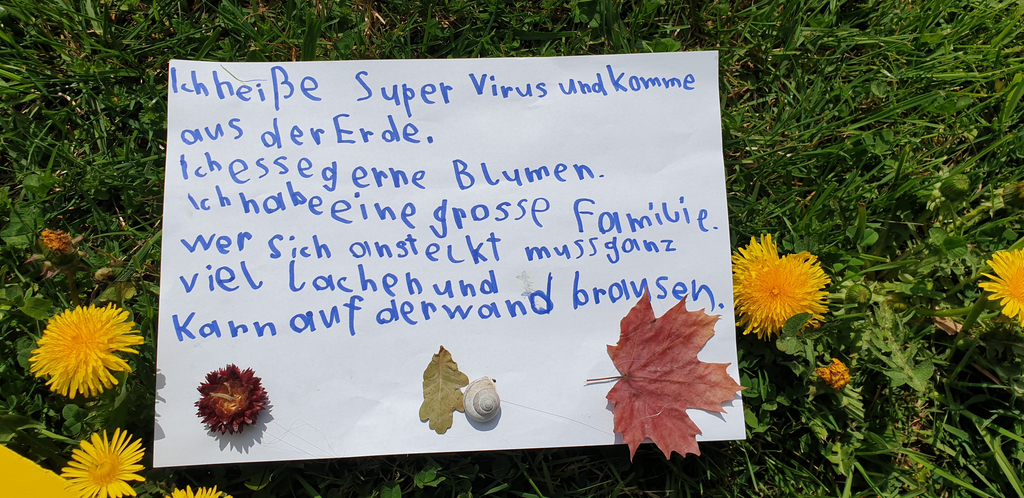 Ich heiße Super Virus und Komme
aus der Erde.
Ich esse gerne Blumen.
Ich habe eine grosse Familie.
wer sich ansteckt muss ganz
viel lachen und
Kann auf der wand brausen.